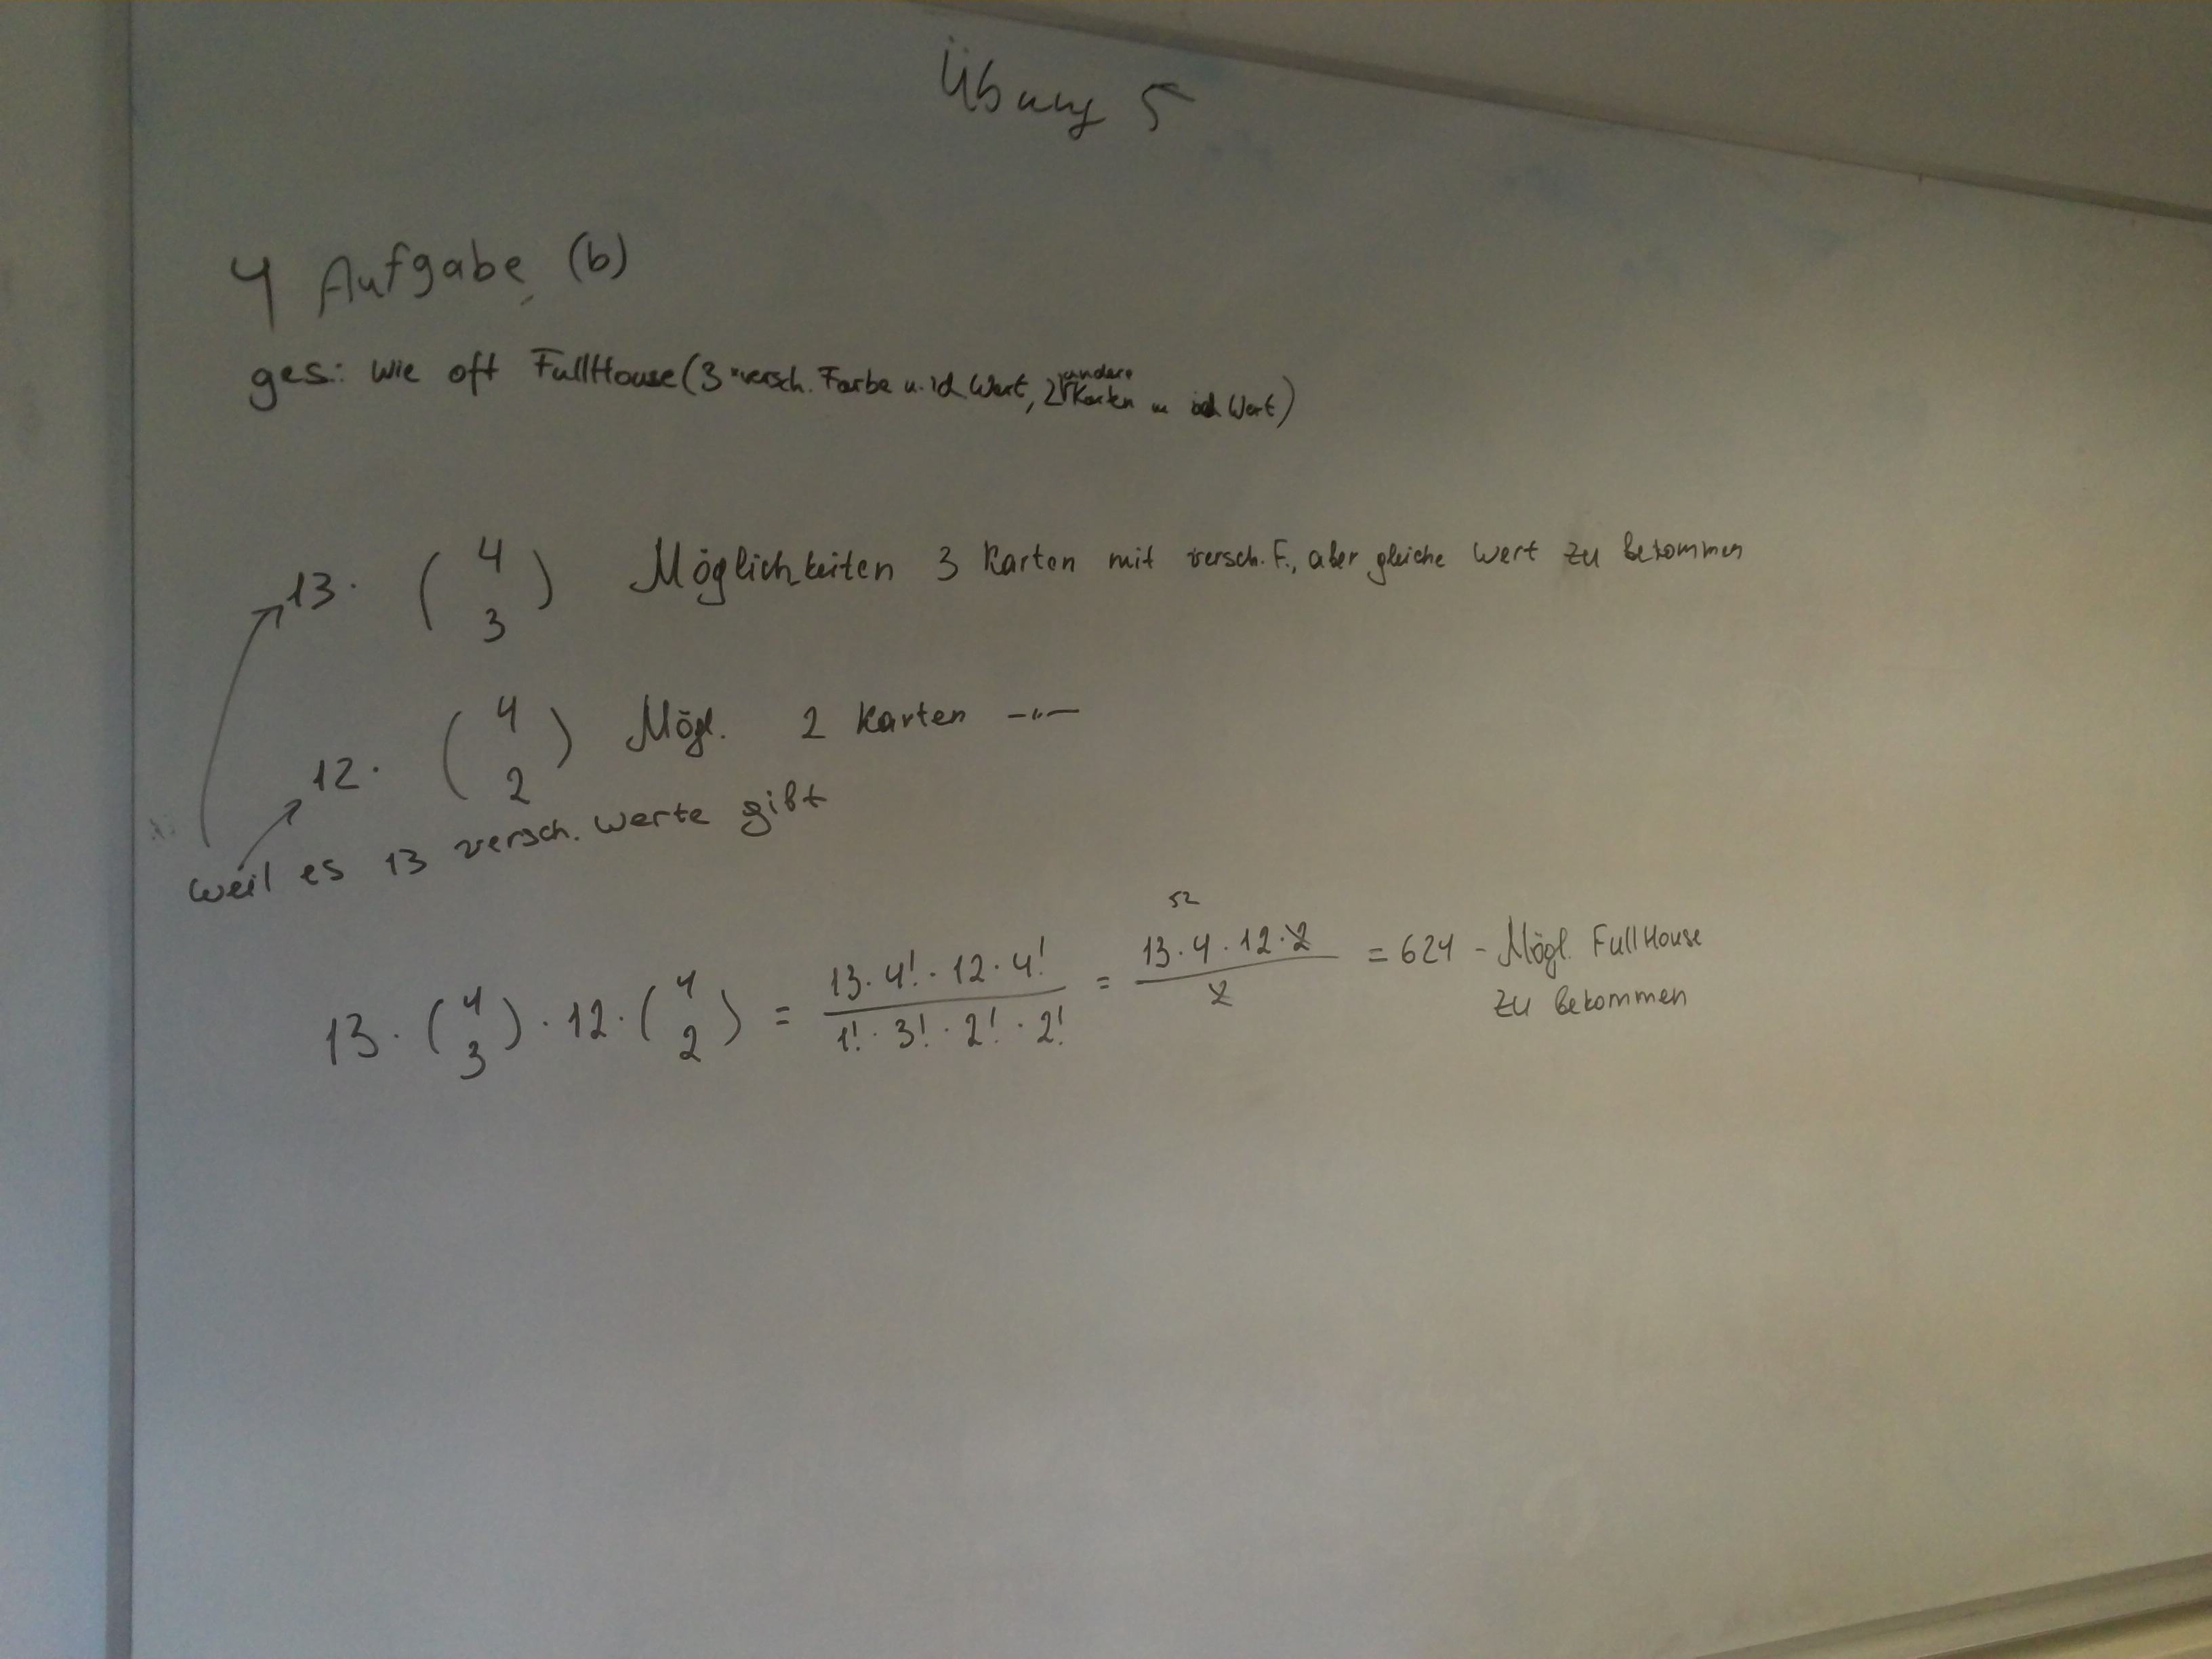 Übung 5
4 Aufgabe (b)
ges: wie oft FullHouse (3 versch. Farbe u. id Wert, 2 andere Karten m id Wert)
13 · (4 3) Möglichkeiten 3 Karten mit versch. F., aber gleiche Wert zu bekommen
12 · (4 2) Mögl. 2 Karten —"—
weil es 13 versch. werte gibt
52
13 · (4 3) · 12 · (4 2) = 13 · 4! · 12 · 4! / 1! · 3! · 2! · 2! = 13 · 4 · 12 · 2 / 2 = 624 - Mögl. FullHouse
zu bekommen